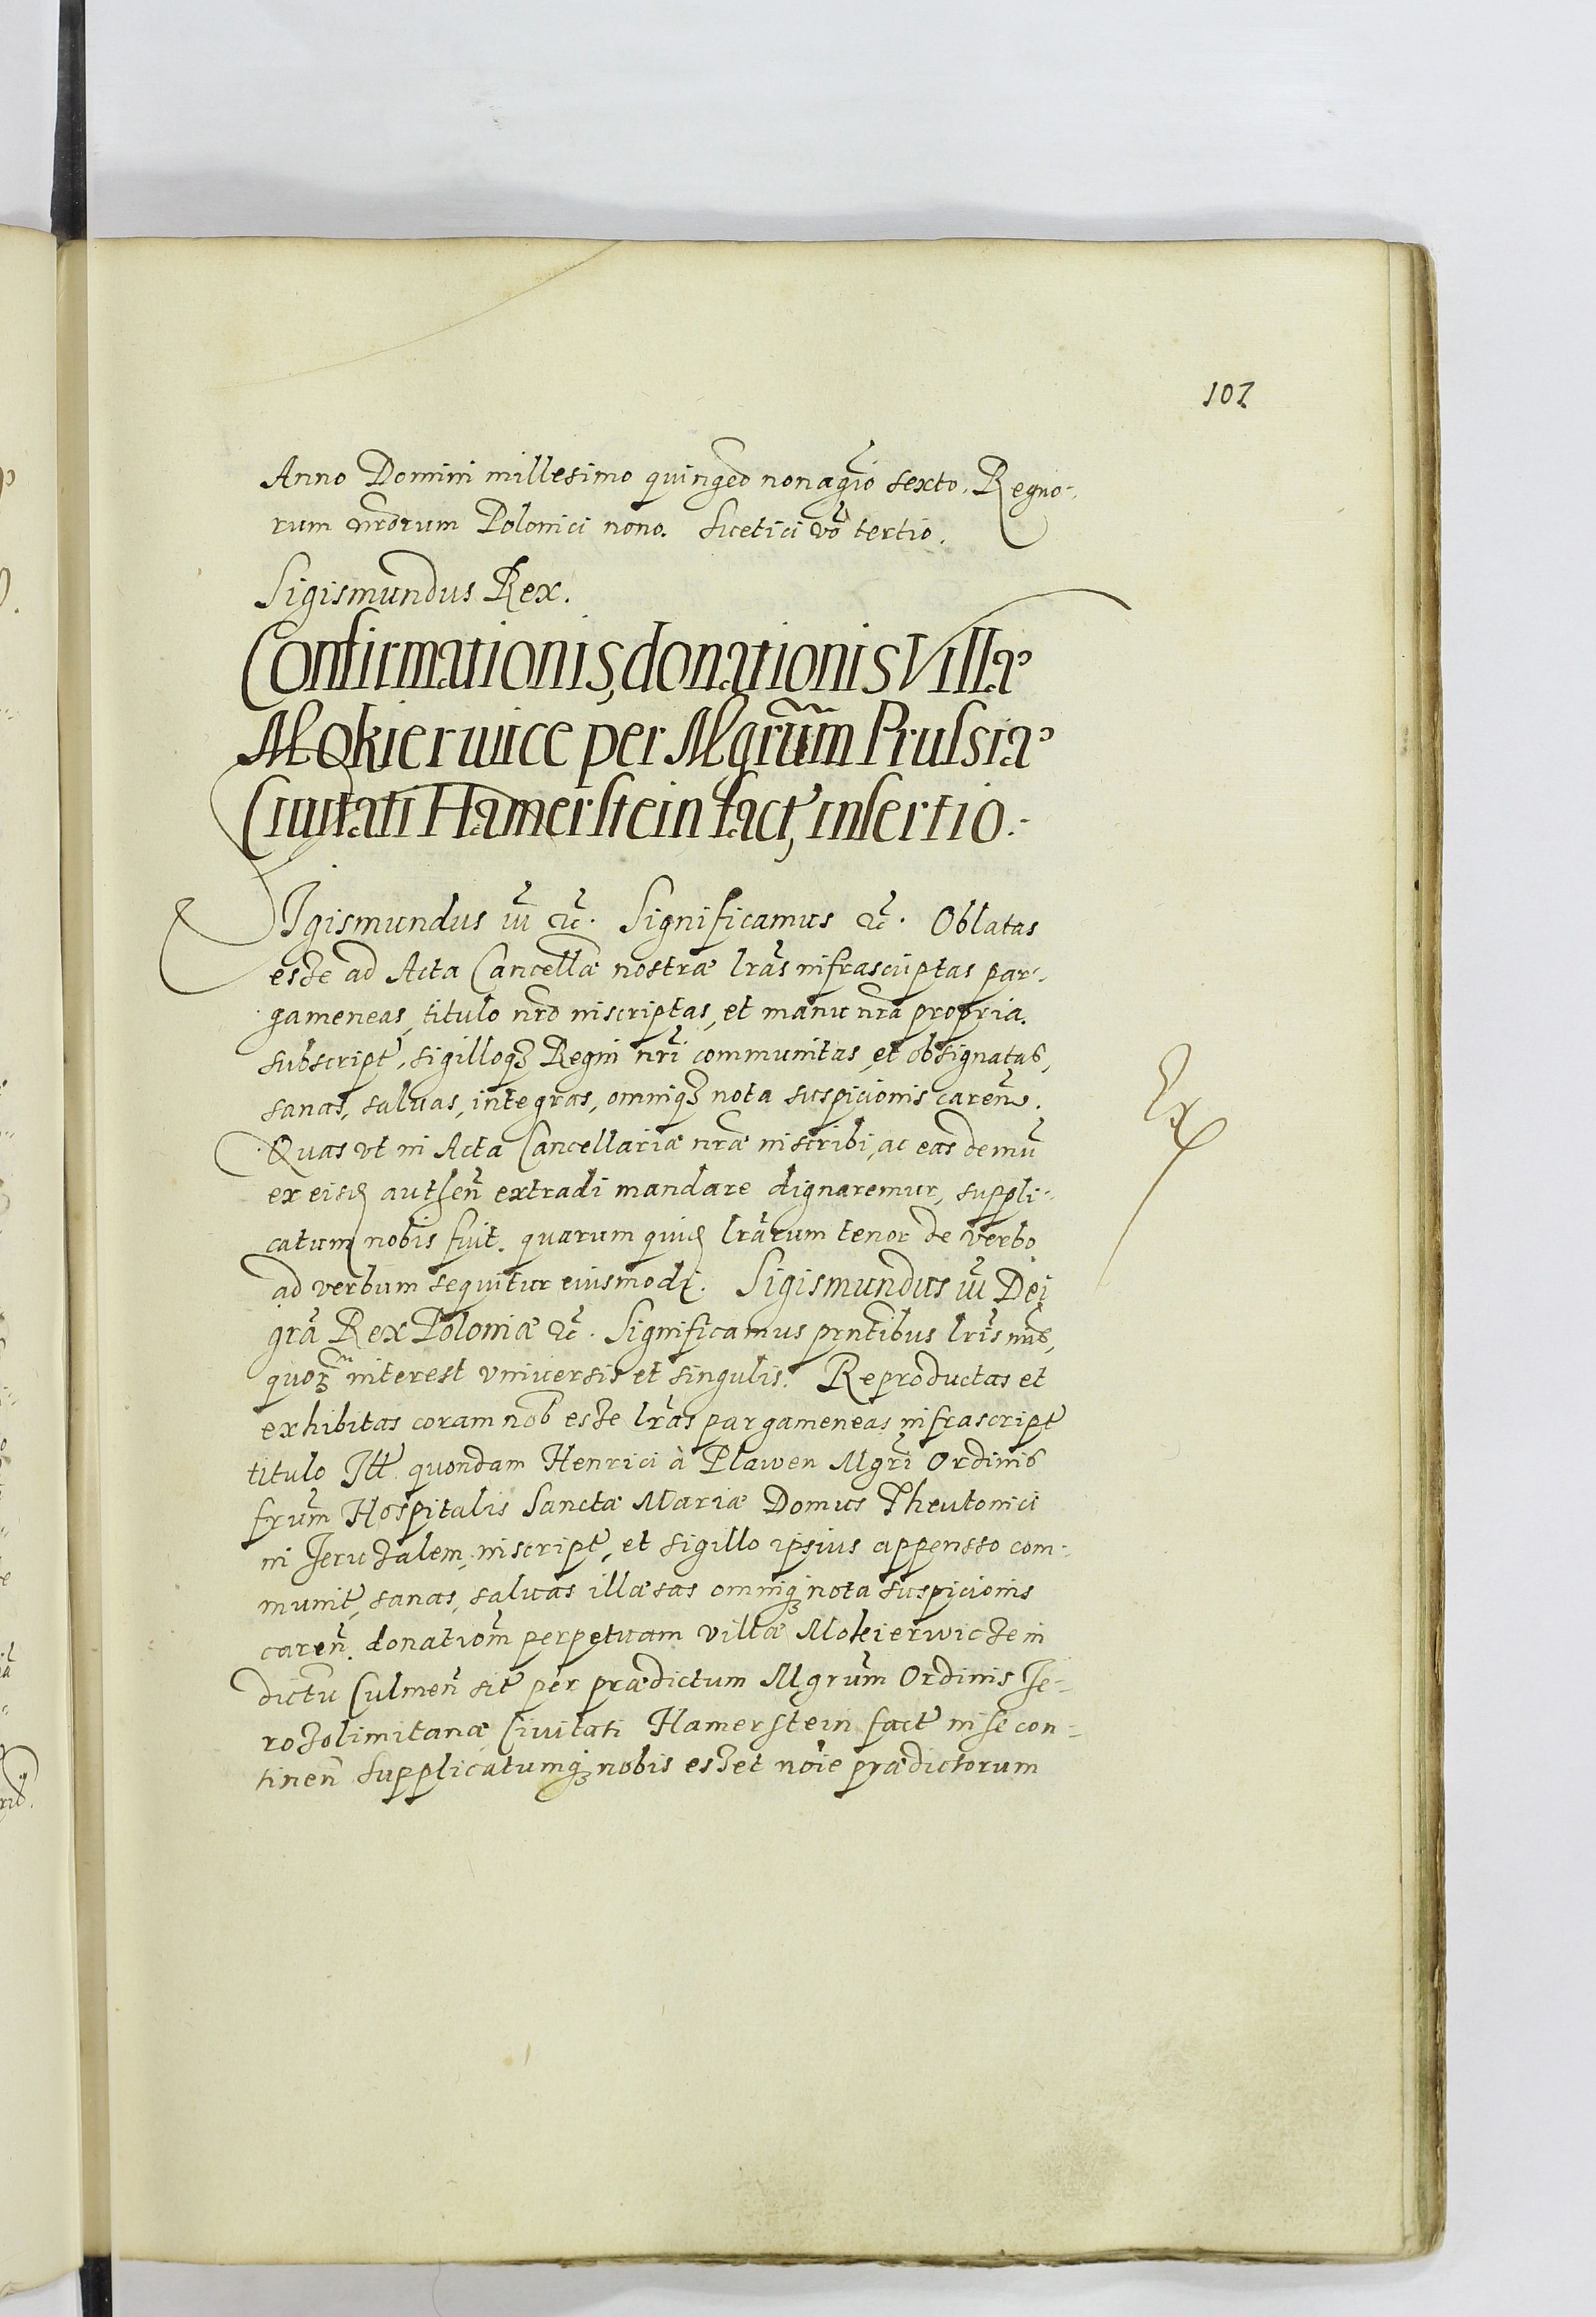 102
Anno Domini millesimo quinged nonagio sexto. Regno-
rum nrorum Polonici nono. Suetici vo tertio.
Sigismundus Rex.
Confirmationis, donationis Villæ
Mokierwice per Mgrum Prussiæ
Ciuitati Hamerstein fact, insertio.
SIgismundus iii etc. Significamus etc. Oblatas
esse ad Acta Cancellæ nostræ lras infrascriptas par-
gameneas, titulo nro inscriptas, et manu nra propria
subscript, sigilloq Regni nri communitas, et obsignatas,
sanas, saluas, integras, omniq nota suspicionis caren.
Quas vt in Acta Cancellariæ nræ inscribi, ac eas demu
ex eisd authen extradi mandare dignaremur, suppli-
catum nobis fuit. quarum quid lrarum tenor de verbo
ad verbum sequitur eiusmodi. Sigismundus iii Dei
gra Rex Poloniæ etc. Significamus prntibus lris nris,
quoz interest vniuersis et singulis. Reproductas et
exhibitas coram nob esse lras pargameneas infrascript
titulo Ill quondam Henrici à Plawen Mgri Ordinis
frum Hospitalis Sanctæ Mariæ Domus Theutonici
in Jerusalem, inscript, et sigillo ipsius appensso com-
munit, sanas, saluas illæsas omniq nota suspicionis
caren. donatiom perpetuam villæ Mokierwicze in
dictu Culmen sit per prædictum Mgrum Ordinis Je-
rosolimitanæ Ciuitati Hamerstein fact in se con-
tinen Supplicatumq nobis esset noie prædictorum
Ex